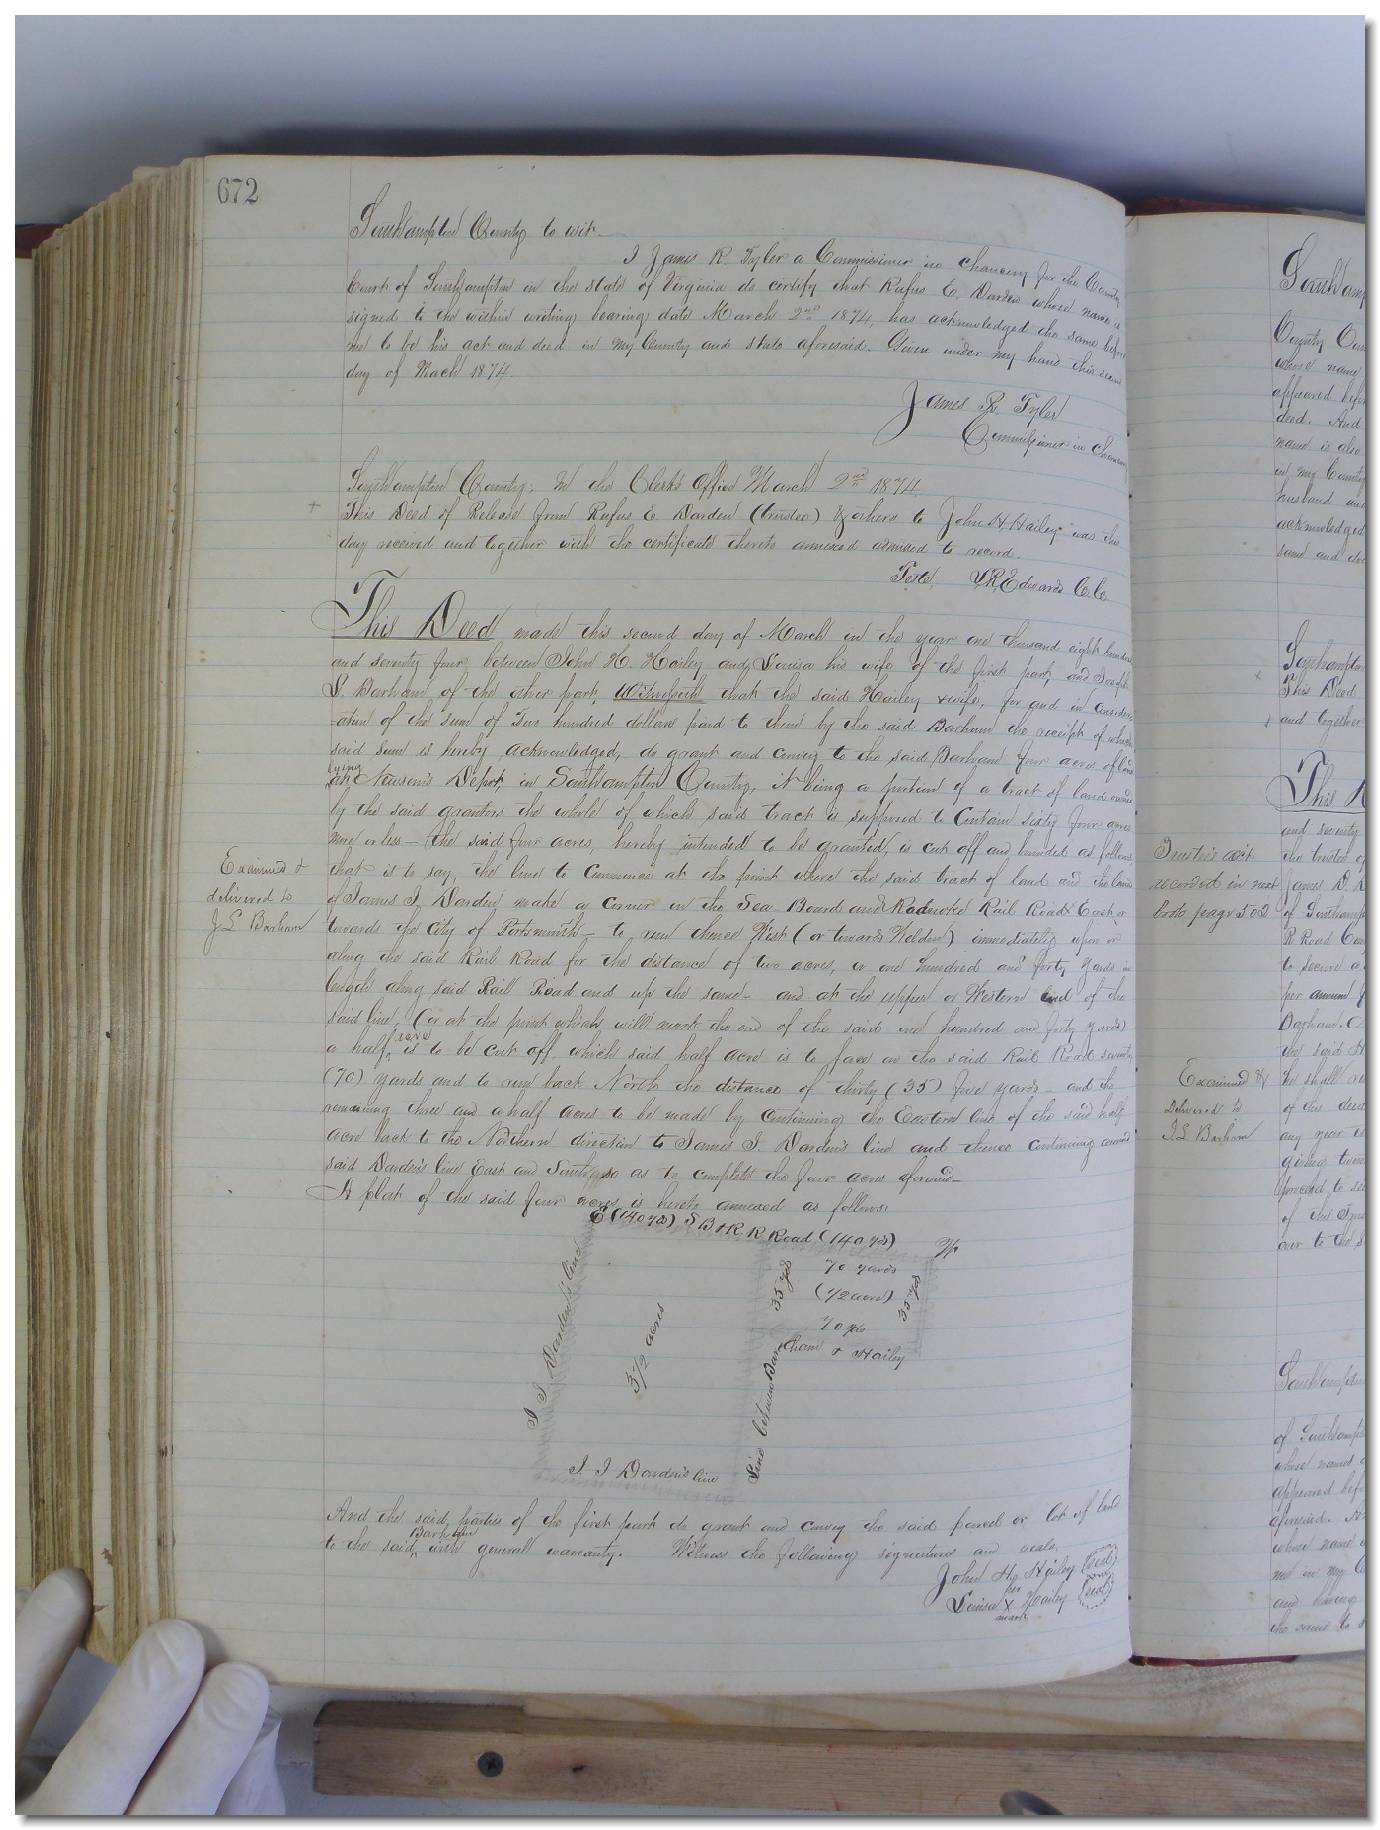 672
Southampton County to wit.
I James R. Tyler a Commissioner in chancery for the County
Court of Southampton in the state of Virginia do certify that Rufus E. Darden whose name is
signed to the within writing bearing date March 2nd 1874, has acknowledged the same before
me to be his act and deed in my County and state aforesaid. Given under my hand this second
day of Mach 1874.
James R. Tyler
Commissioner in Chancery
Southampton County. In the Clerk's Office March 2nd 1874
This Deed of Release from Rufus E Darden (trustee) & others to John H. Hailey was this
day received and together with the certificate thereto annexed admitted to record.
Teste, L.R. Edwards C.C.
This Deed made this second day of March in the year one thousand eight hundred
and seventy four between John H. Hailey and Louisa his wife of the first part, and Joseph
L. Barham of the other part, Witnesseth that the said Hailey & wife, for and in consider-
ation of the sum of Two hundred dollars paid to them by the said Barham the receipt of which
said sum is hereby acknowledged, do grant and convey to the said Barham four acres of land
lying
at Newsom's Depot, in Southampton County, it being a portion of a tract of land owned
by the said grantors the whole of which said tract is supposed to contain sixty four acres
more or less - the said four acres, hereby intended to be granted, is cut off and bounded as follows
that is to say, the line to commence at the point where the said tract of land and the lands
of James J. Darden make a corner on the Sea Board and Roanoke Rail Road East or
towards the city of Portsmouth - to run thence West (or towards Weldon) immediately upon or
along the said Rail Road for the distance of two acres, or one hundred and forty yards in
length along said Rail Road and up the same - and at the upper or Western end of the
said line, (or at the point which will mark the end of the said one hundred and forty yards)
a half acre is to be cut off which said half acre is to face on the said Rail Road seventy
(70) yards and to run back North the distance of thirty (35) five yards - and the
remaining three and a half acres to be made by continuing the Eastern line of the said half
acre back to the Northern direction to James J. Darden's line and thence continuing around
said Darden's line East and South so as to complete the four acres aforesaid -
A plat of the said four acres is hereto annexed as follows:
Examined &
delivered to
J L Barham
E (140 yds) S B & R R Road (140 yds) W
J J Darden's line
3 1/2 acres
35 yds
70 yards
(1/2 acre)
70 yds
35 yds
Line between Barham & Hailey
J J Darden's line
And the said parties of the first part do grant and convey the said parcel or lot of land
to the said Barham with general warranty. Witness the following signatures and seals.
John H. Hailey (seal)
her
Louisa X Hailey (seal)
mark
Southam
County Cou
whose name
appeared befo
deed. And
name is also
in my County
husband an
acknowledged
same and de
Southampton
This Deed
and together
This
and seventy
the trustee
James D.
of Southamp
R Road Com
to secure a
per annum
Barham.
the said H
he shall
of this deed
any year
giving twen
proceed to se
of the
over to the
Trustees acct
recorded in next
book page 502
Examined &
delivered to
J.L. Barham
Southampton
of Southamp
whose names
appeared befo
aforesaid.
whose name
me in my
and having
the same to